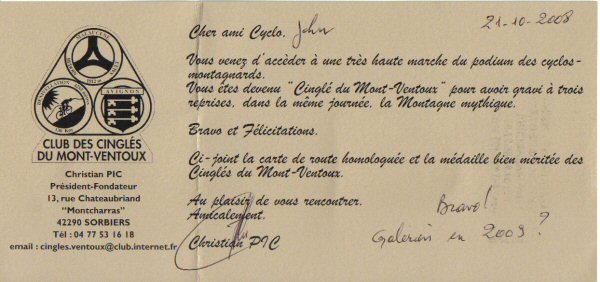 MALAUCENE
BEDOIN
SAULT
1912 m
HOMOLOGATION
136 Km
AVIGNON
CLUB DES CINGLÉS
DU MONT-VENTOUX
Christian PIC
Président-Fondateur
13, rue Chateaubriand
"Montcharras"
42290 SORBIERS
Tél : 04 77 53 16 18
email : cingles.ventoux@club.internet.fr
21-10-2008
Cher ami Cyclo, John
Vous venez d'accèder à une très haute marche du podium des cyclos-
montagnards.
Vous êtes devenu "Cinglé du Mont-Ventoux" pour avoir gravi à trois
reprises, dans la même journée, la Montagne mythique.
Bravo et Félicitations.
Ci-joint la carte de route homologuée et la médaille bien méritée des
Cinglés du Mont-Ventoux.
Au plaisir de vous rencontrer.
Amicalement.
Christian PIC
Bravo!
Galérien en 2009 ?